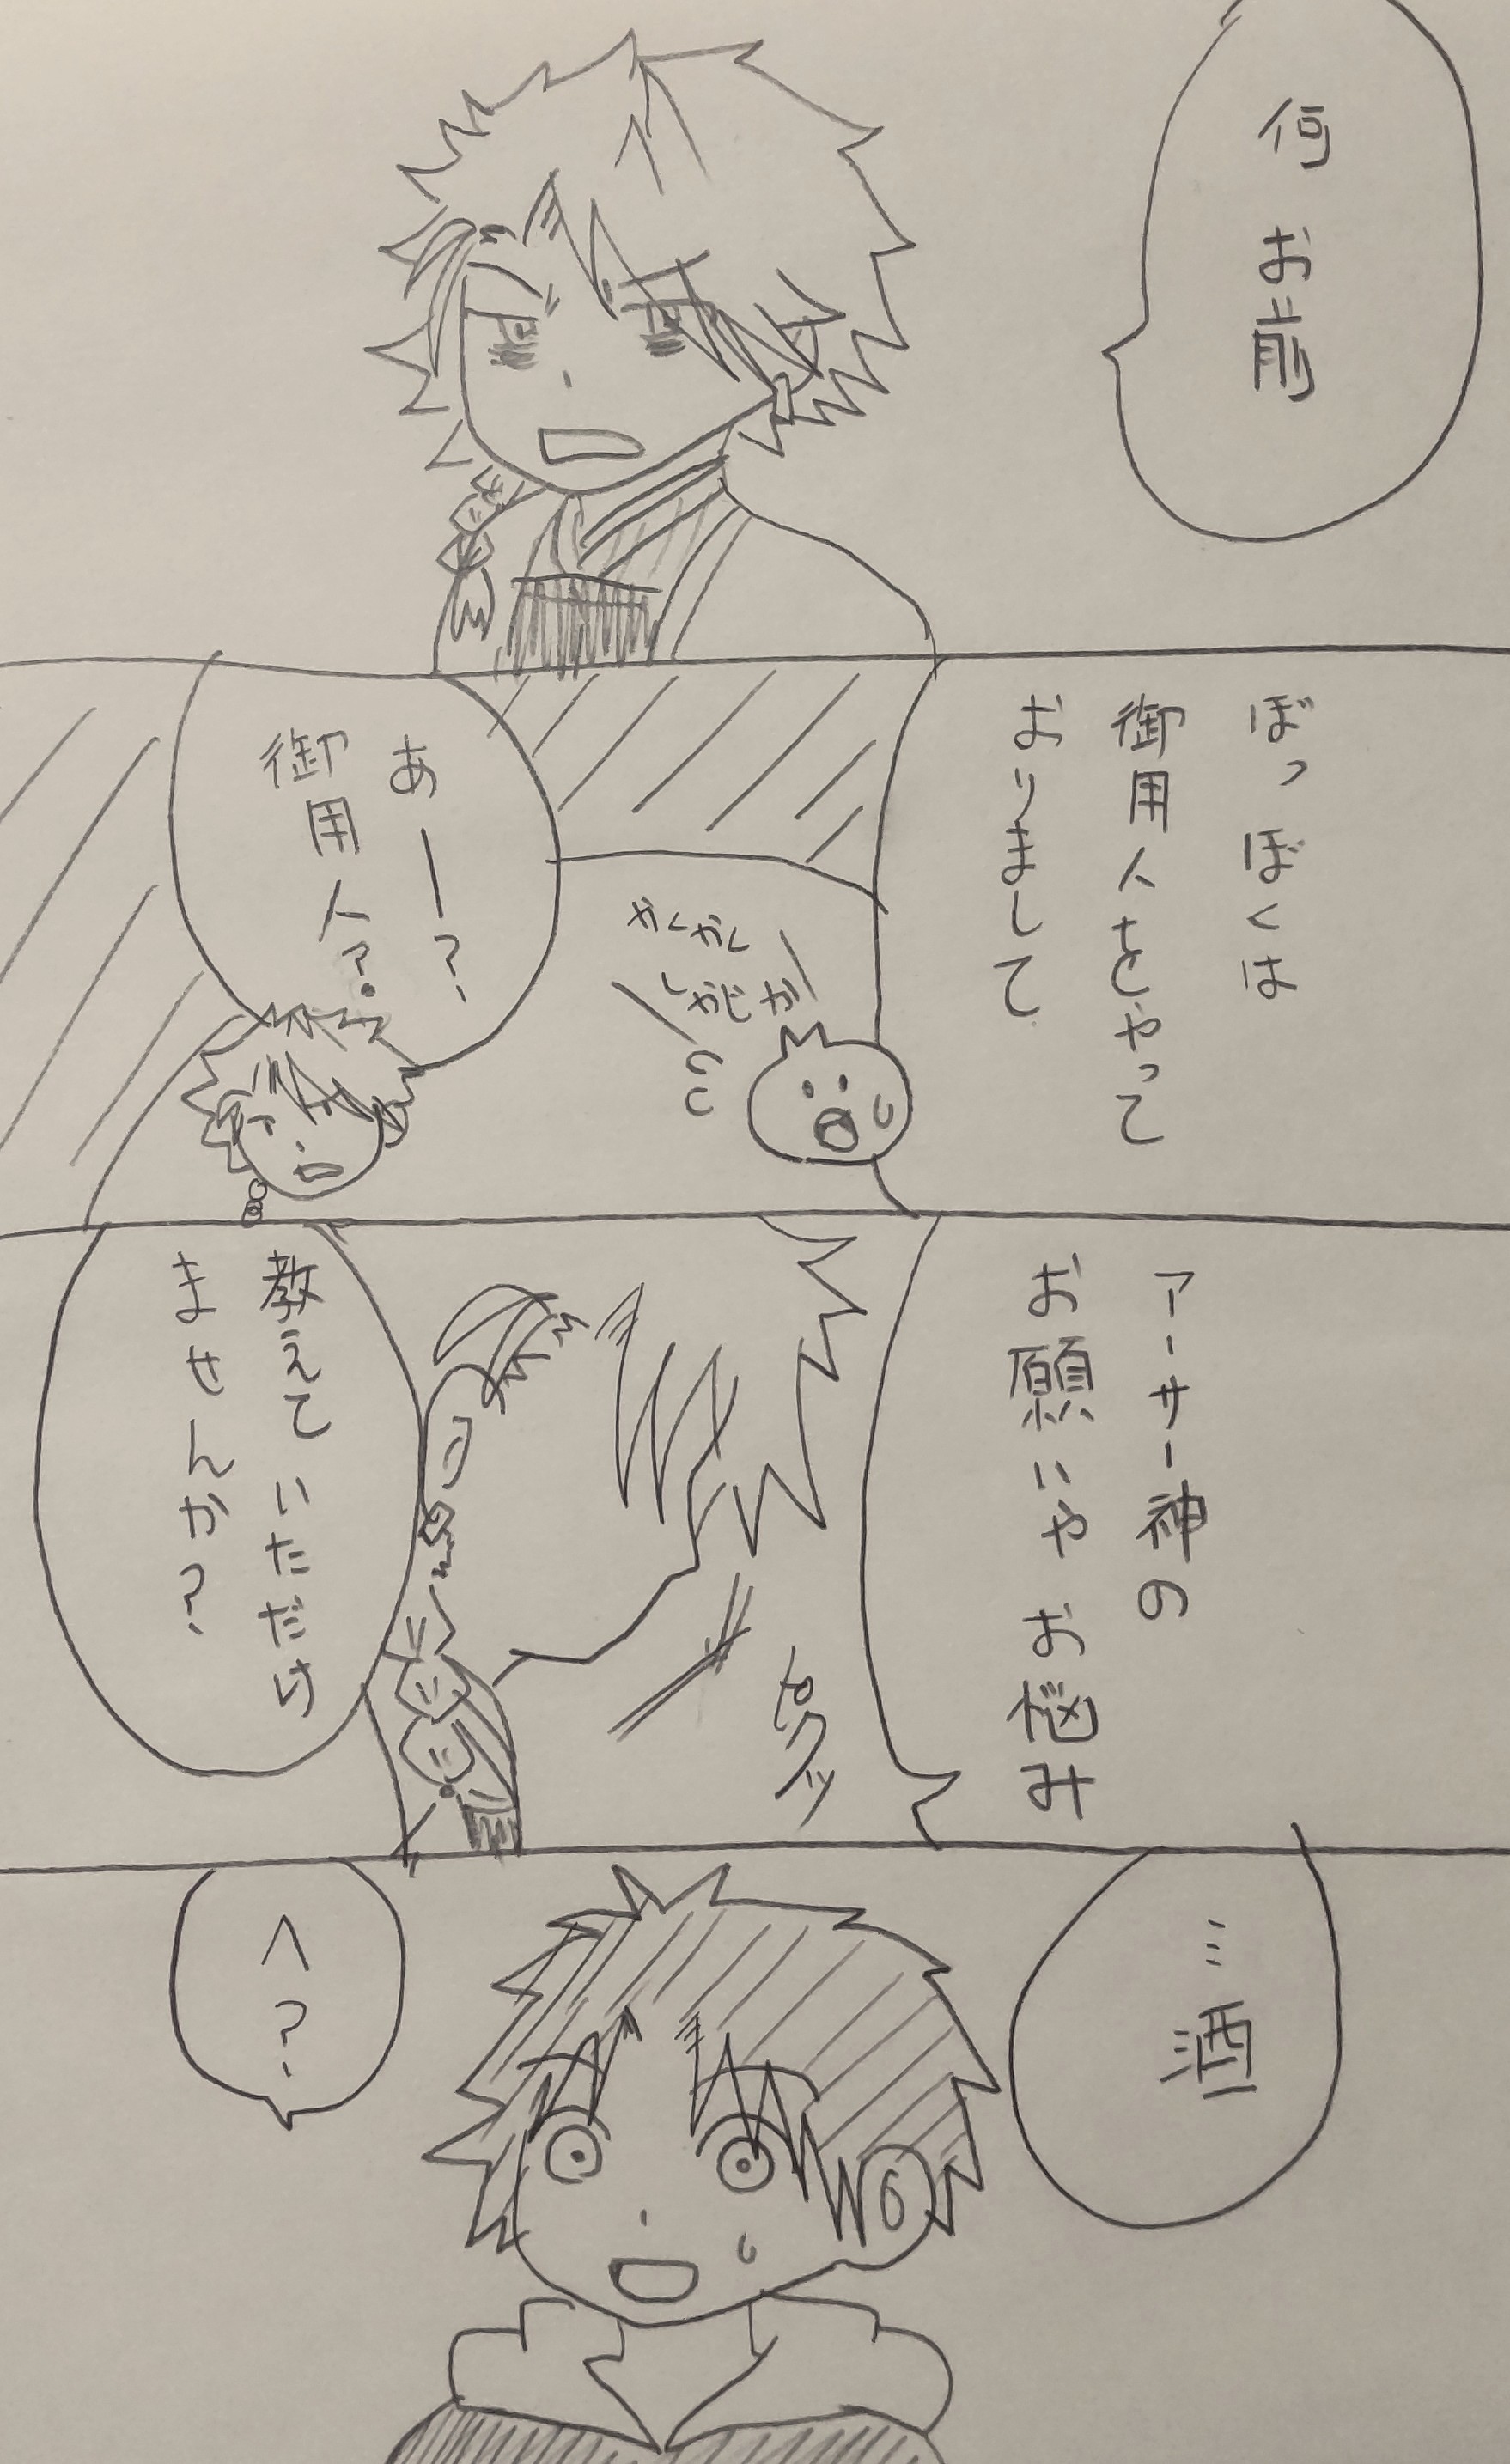 何お前
ぼっぼくは
御用人をやって
おりまして
かくかく
しかじか
あー?
御用人?
アーサー神の
お願いやお悩み
ピクッ
教えていただけ
ませんか?
…酒
へ?